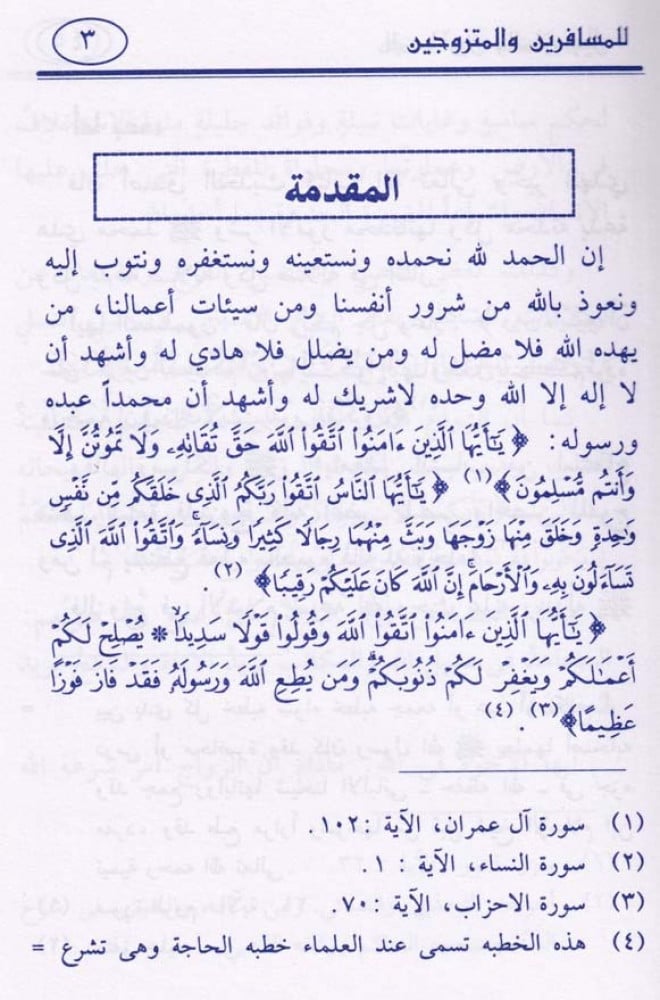 للمسافرين والمتزوجين
٣
المقدمة
إن الحمد لله نحمده ونستعينه ونستغفره ونتوب إليه
ونعوذ بالله من شرور أنفسنا ومن سيئات أعمالنا، من
يهده الله فلا مضل له ومن يضلل فلا هادي له وأشهد أن
لا إله إلا الله وحده لاشريك له وأشهد أن محمداً عبده
ورسوله: ﴿ يَٰٓأَيُّهَا ٱلَّذِينَ ءَامَنُوا۟ ٱتَّقُوا۟ ٱللَّهَ حَقَّ تُقَاتِهِۦ وَلَا تَمُوتُنَّ إِلَّا
وَأَنتُم مُّسْلِمُونَ ﴾(١) ﴿ يَٰٓأَيُّهَا ٱلنَّاسُ ٱتَّقُوا۟ رَبَّكُمُ ٱلَّذِى خَلَقَكُم مِّن نَّفْسٍ
وَٰحِدَةٍ وَخَلَقَ مِنْهَا زَوْجَهَا وَبَثَّ مِنْهُمَا رِجَالًا كَثِيرًا وَنِسَآءً وَٱتَّقُوا۟ ٱللَّهَ ٱلَّذِى
تَسَآءَلُونَ بِهِۦ وَٱلْأَرْحَامَ إِنَّ ٱللَّهَ كَانَ عَلَيْكُمْ رَقِيبًا ﴾(٢)
﴿ يَٰٓأَيُّهَا ٱلَّذِينَ ءَامَنُوا۟ ٱتَّقُوا۟ ٱللَّهَ وَقُولُوا۟ قَوْلًا سَدِيدًا * يُصْلِحْ لَكُمْ
أَعْمَٰلَكُمْ وَيَغْفِرْ لَكُمْ ذُنُوبَكُمْ وَمَن يُطِعِ ٱللَّهَ وَرَسُولَهُۥ فَقَدْ فَازَ فَوْزًا
عَظِيمًا ﴾(٣) (٤)
(١) سورة آل عمران، الآية ١٠٢.
(٢) سورة النساء، الآية : ١.
(٣) سورة الاحزاب، الآية :٧٠.
(٤) هذه الخطبه تسمى عند العلماء خطبه الحاجة وهى تشرع =